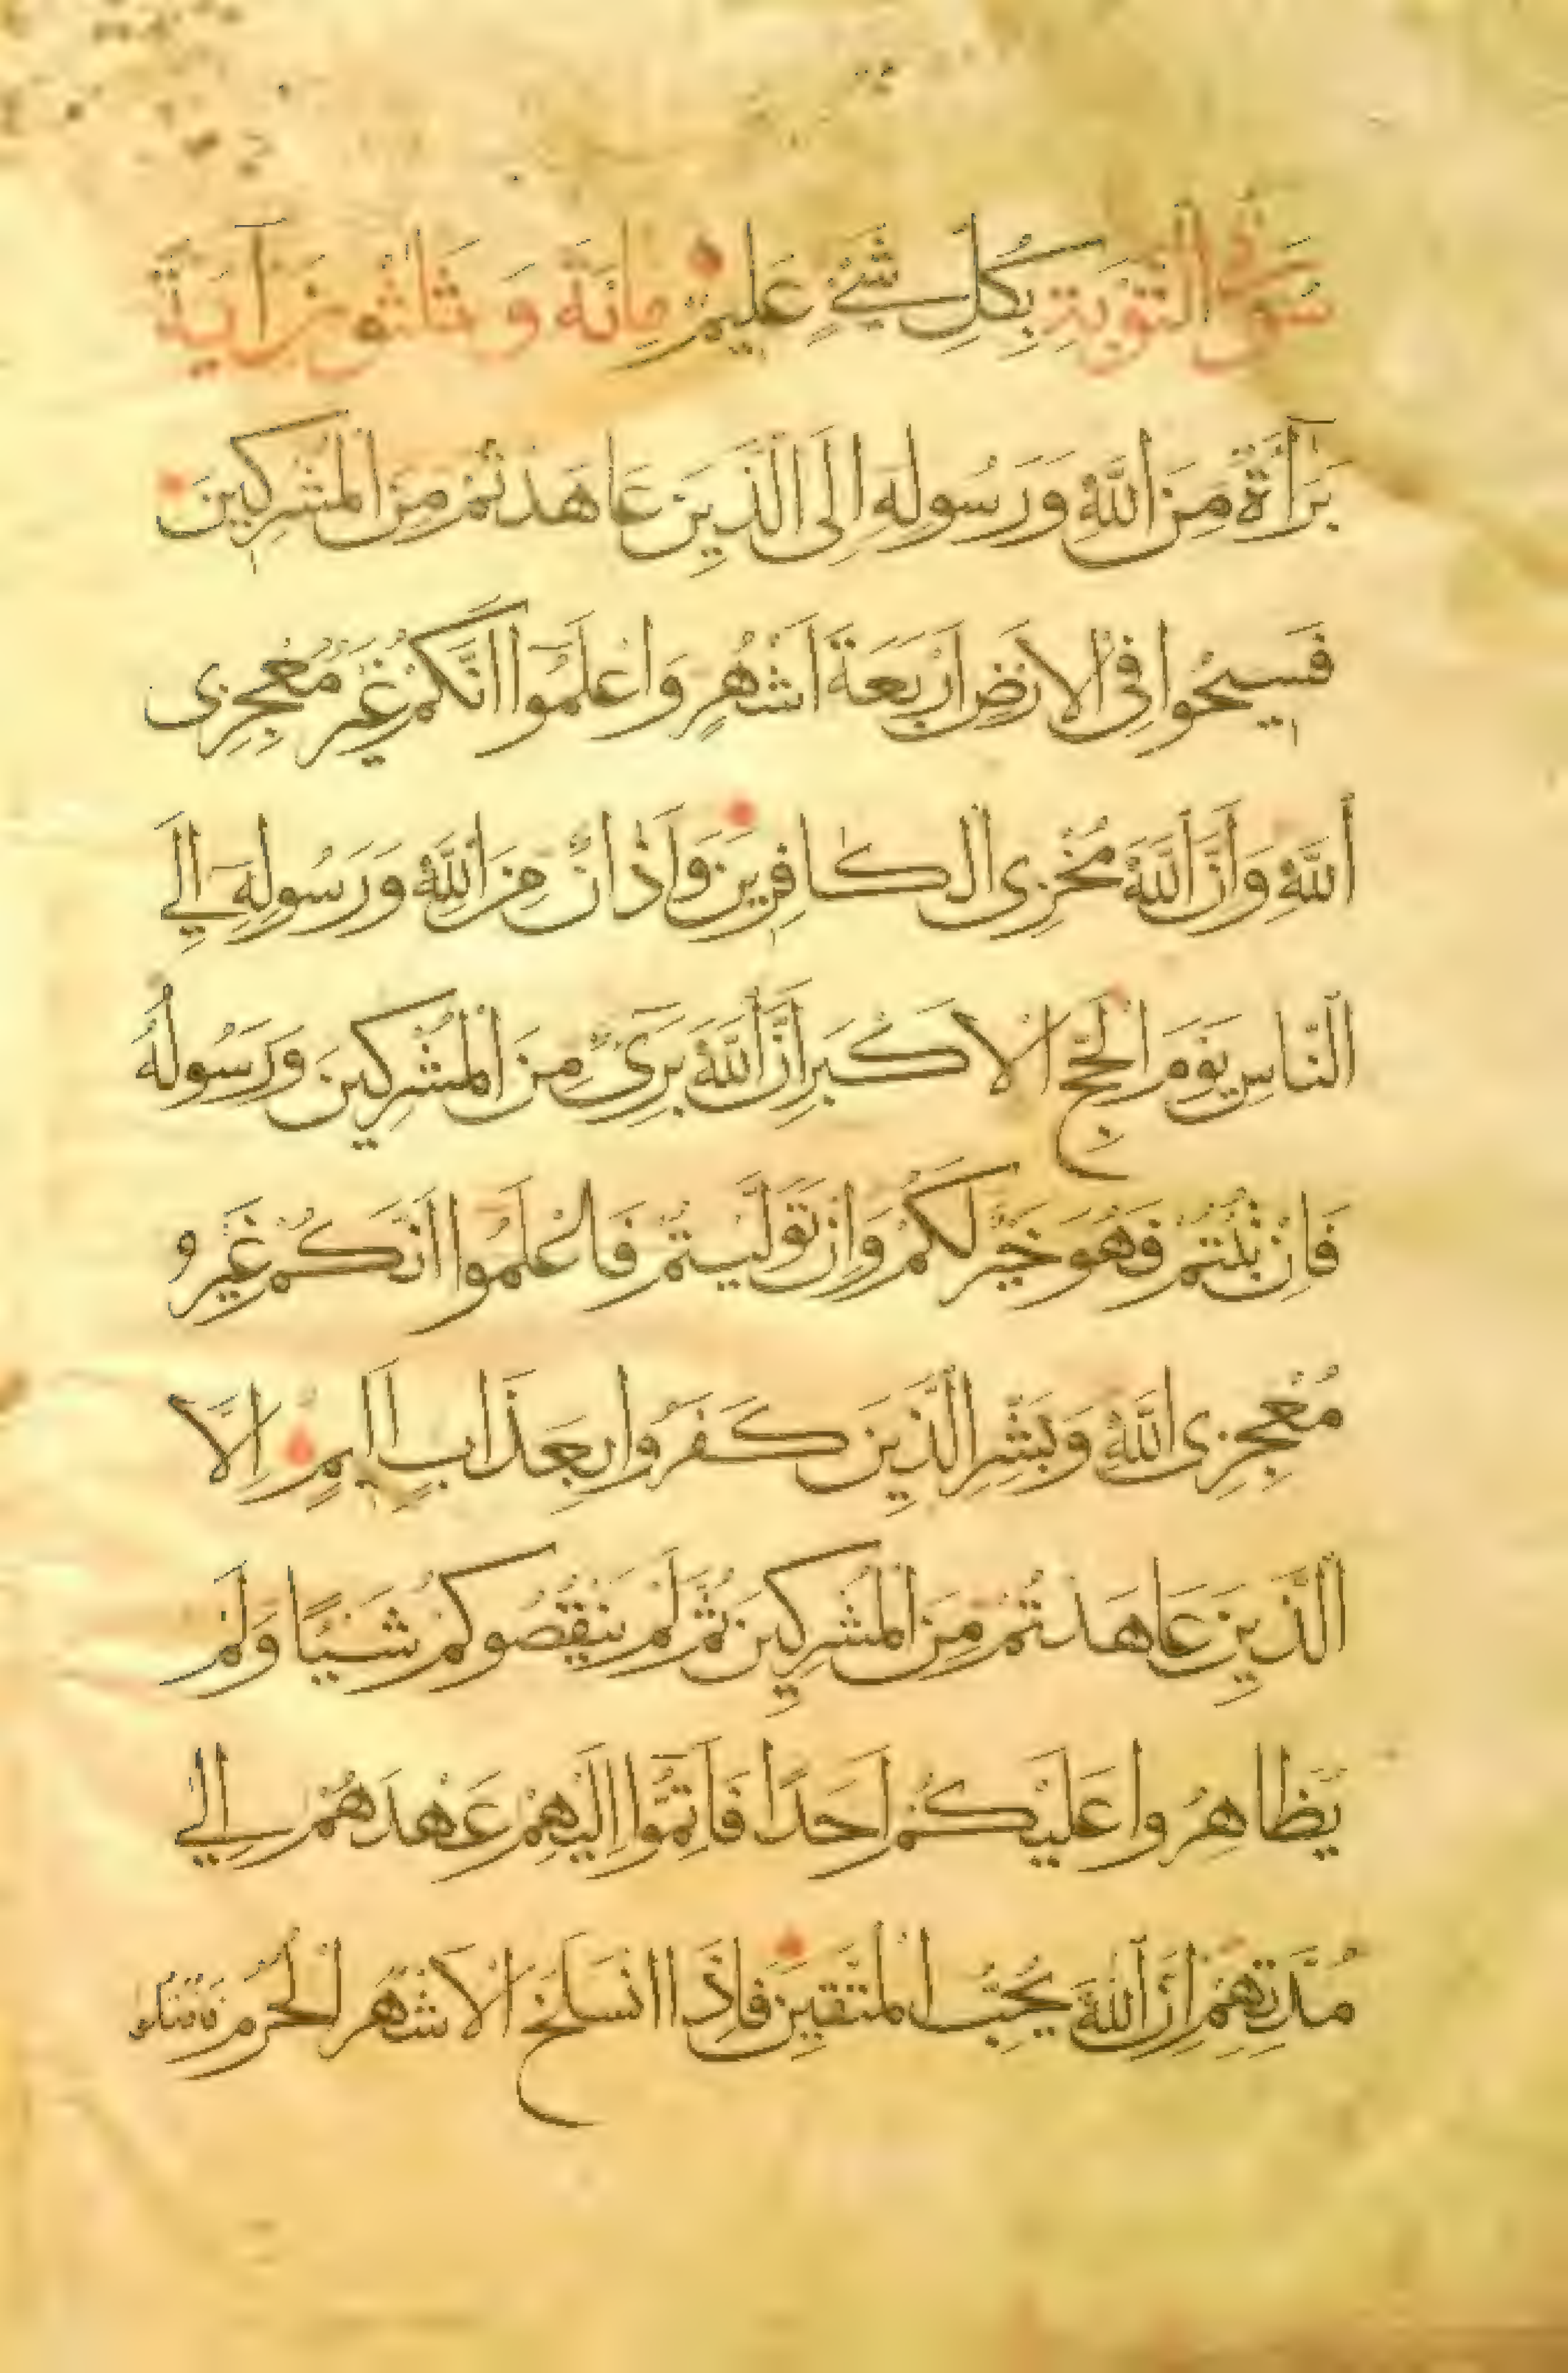 سُورَةُ التَّوْبَةِ بِكُلِّ شَيْءٍ عَلِيمٌ مِائَة وَثَلٰثُونَ آيَةً
بَرَآءَةٌ مِنَ اللّٰهِ وَرَسُولِهِ اِلَى الَّذِينَ عَاهَدْتُمْ مِنَ الْمُشْرِكِينَ
فَسِيحُوا فِى الْاَرْضِ اَرْبَعَةَ اَشْهُرٍ وَاعْلَمُوا اَنَّكُمْ غَيْرُ مُعْجِزِى
اللّٰهِ وَاَنَّ اللّٰهَ مُخْزِى الْكَافِرِينَ وَاَذَانٌ مِنَ اللّٰهِ وَرَسُولِهِ اِلَى
النَّاسِ يَوْمَ الْحَجِّ الْاَكْبَرِ اَنَّ اللّٰهَ بَرِىءٌ مِنَ الْمُشْرِكِينَ وَرَسُولُهُ
فَاِنْ تُبْتُمْ فَهُوَ خَيْرٌ لَكُمْ وَاِنْ تَوَلَّيْتُمْ فَاعْلَمُوا اَنَّكُمْ غَيْرُ
مُعْجِزِى اللّٰهِ وَبَشِّرِ الَّذِينَ كَفَرُوا بِعَذَابٍ اَلِيمٍ اِلَّا
الَّذِينَ عَاهَدْتُمْ مِنَ الْمُشْرِكِينَ ثُمَّ لَمْ يَنْقُصُوكُمْ شَيْئًا وَلَمْ
يُظَاهِرُوا عَلَيْكُمْ اَحَدًا فَاَتِمُّوا اِلَيْهِمْ عَهْدَهُمْ اِلٰى
مُدَّتِهِمْ اِنَّ اللّٰهَ يُحِبُّ الْمُتَّقِينَ فَاِذَا انْسَلَخَ الْاَشْهُرُ الْحُرُمُ فَاقْتُلُوا